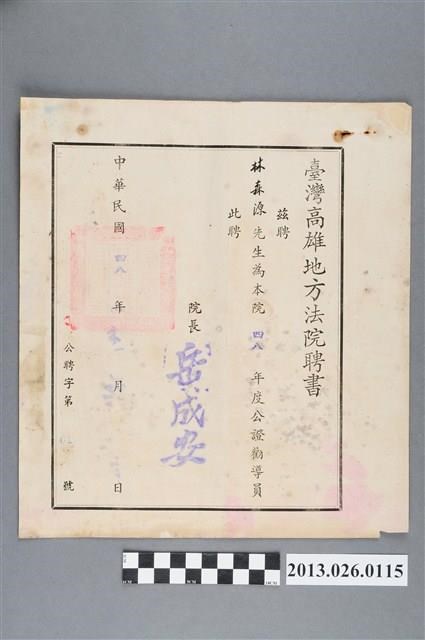 臺灣高雄地方法院聘書
茲聘
林森源先生為本院四八年度公證勸導員
此聘
院長 岳成安
中華民國四八年 月 日
公聘字第 號
2013.026.0115